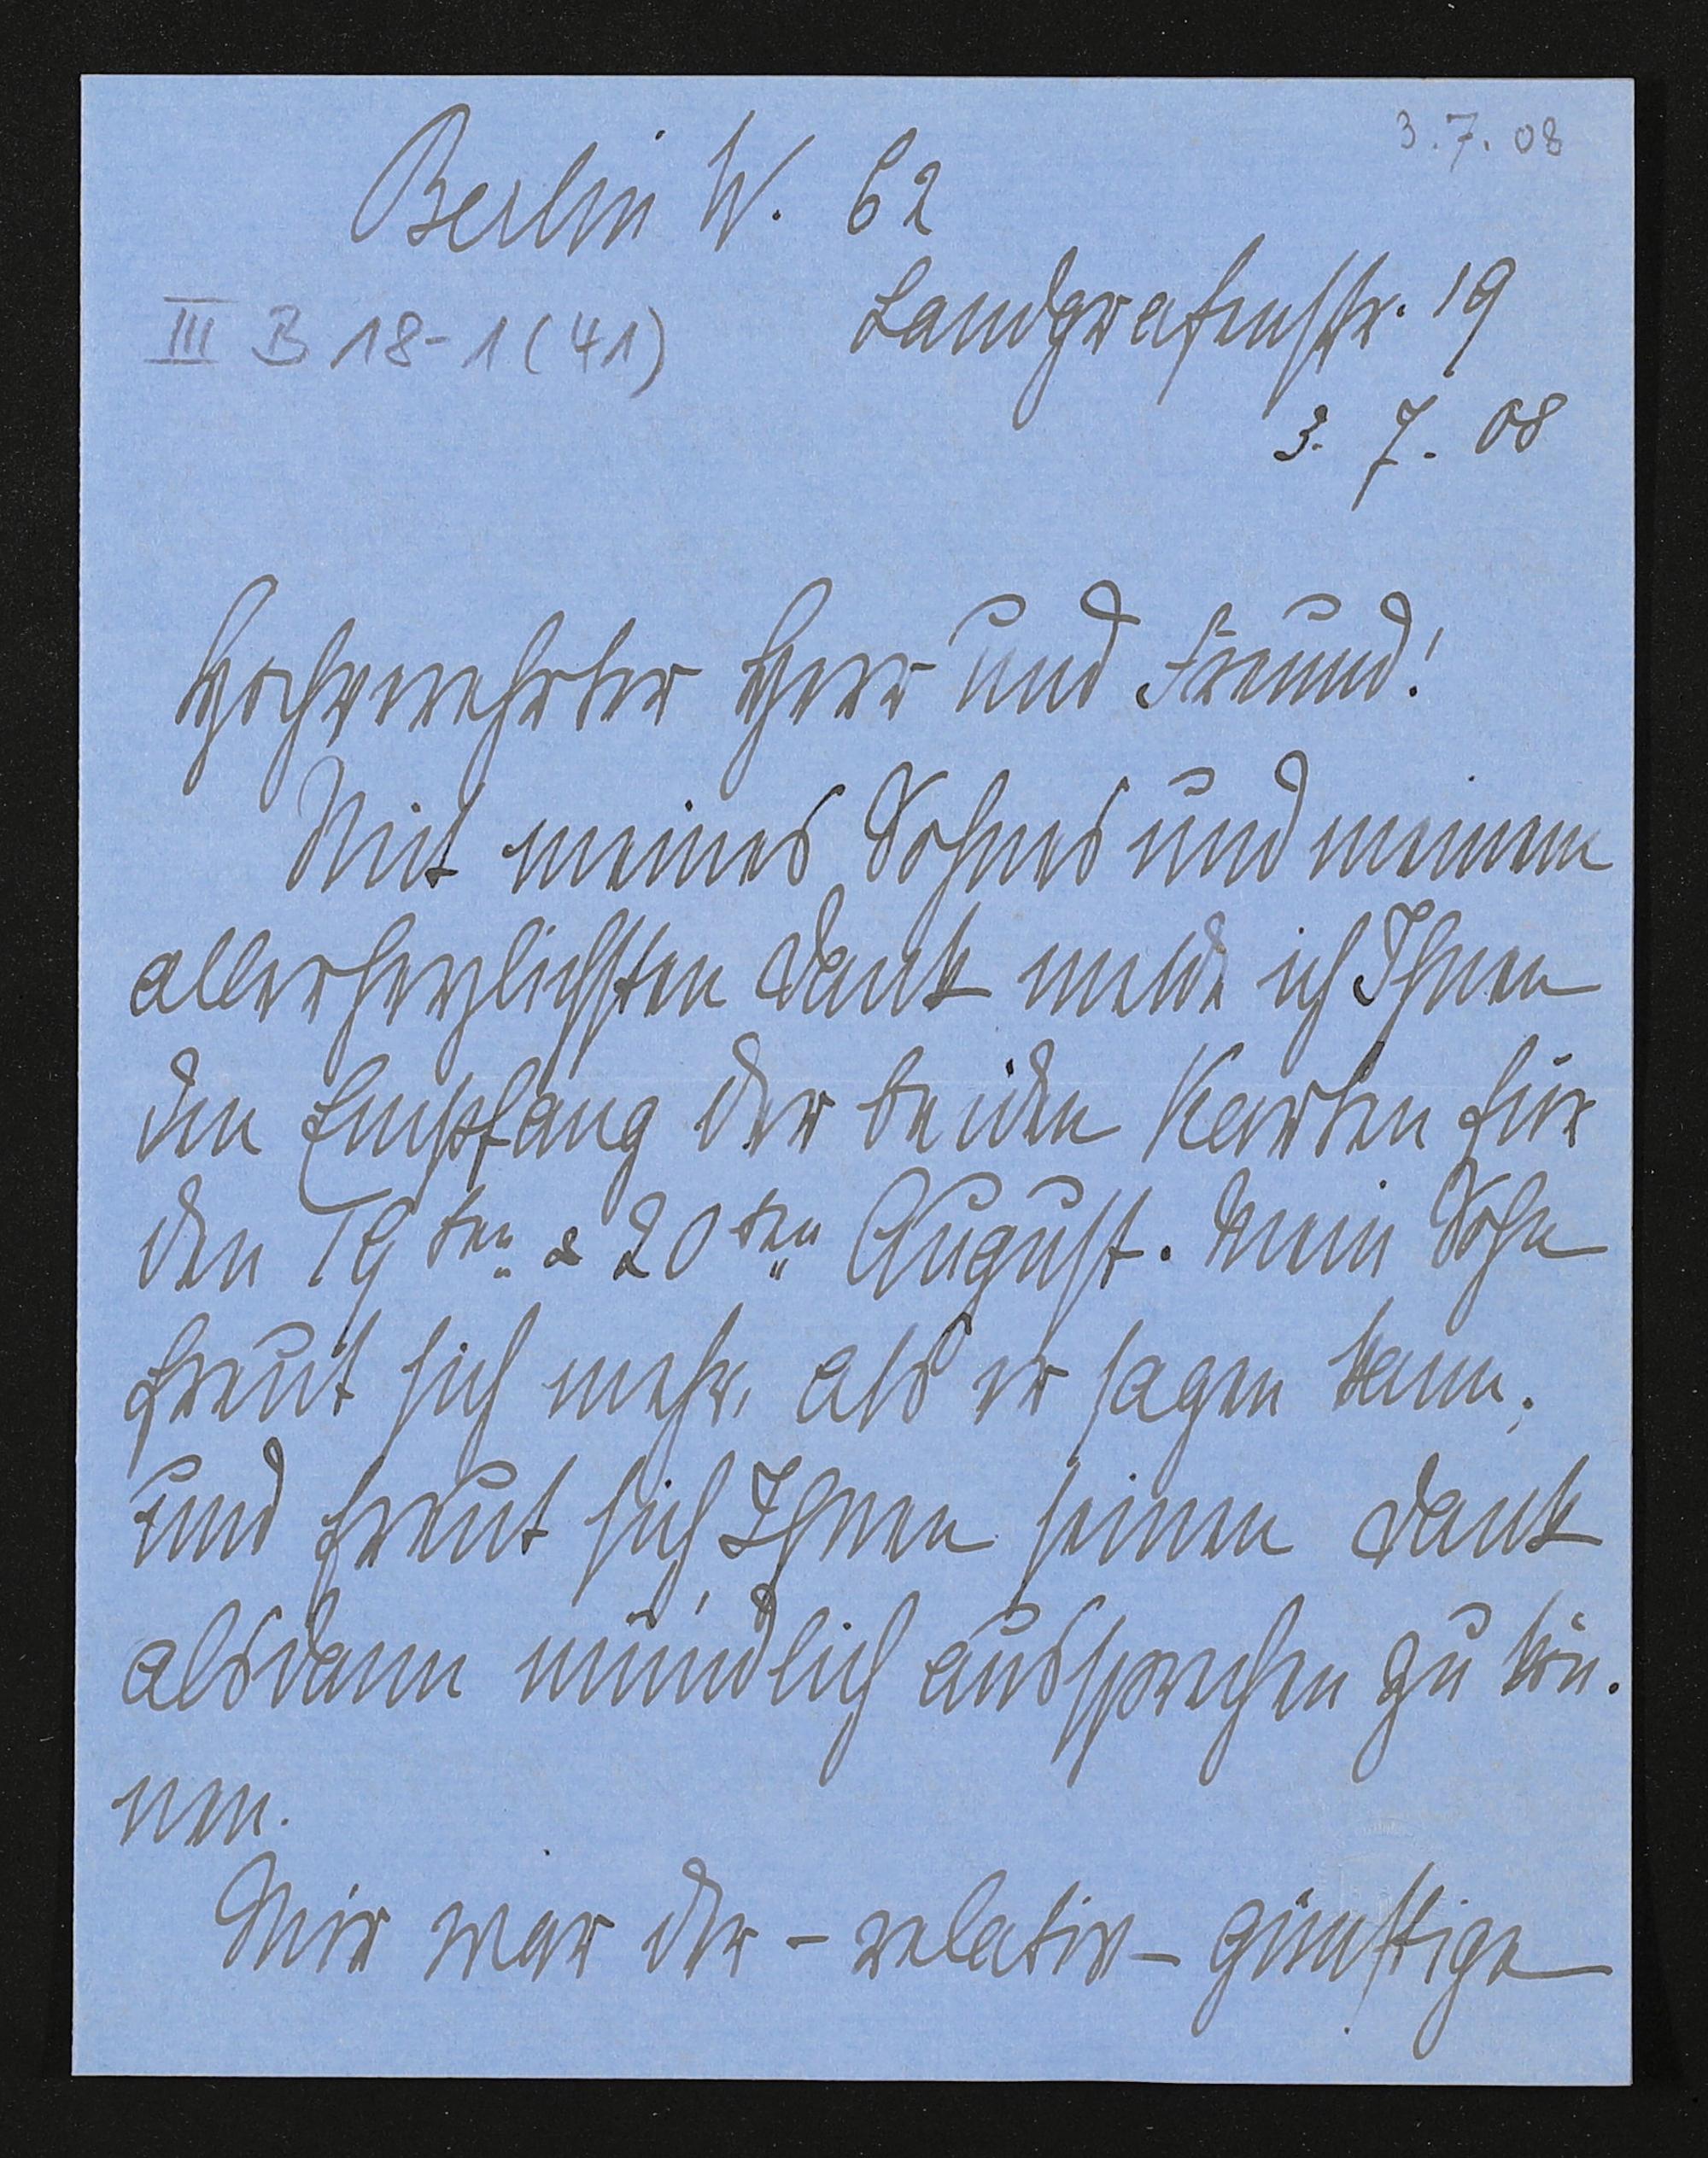 3.7.08
Berlin W. 62
III B 18-1 (41)
Landgrafenstr. 19
3. 7. 08
Hochverehrter Herr und Freund!
Mit meines Sohnes und meinem
allerherzlichsten Dank melde ich Ihnen
den Empfang der beiden Karten für
den 19ten & 20ten August. Mein Sohn
freut sich mehr, als er sagen kann,
und freut sich, Ihnen seinen Dank
alsdann mündlich aussprechen zu kön-
nen.
Mir war der - relativ - günstige